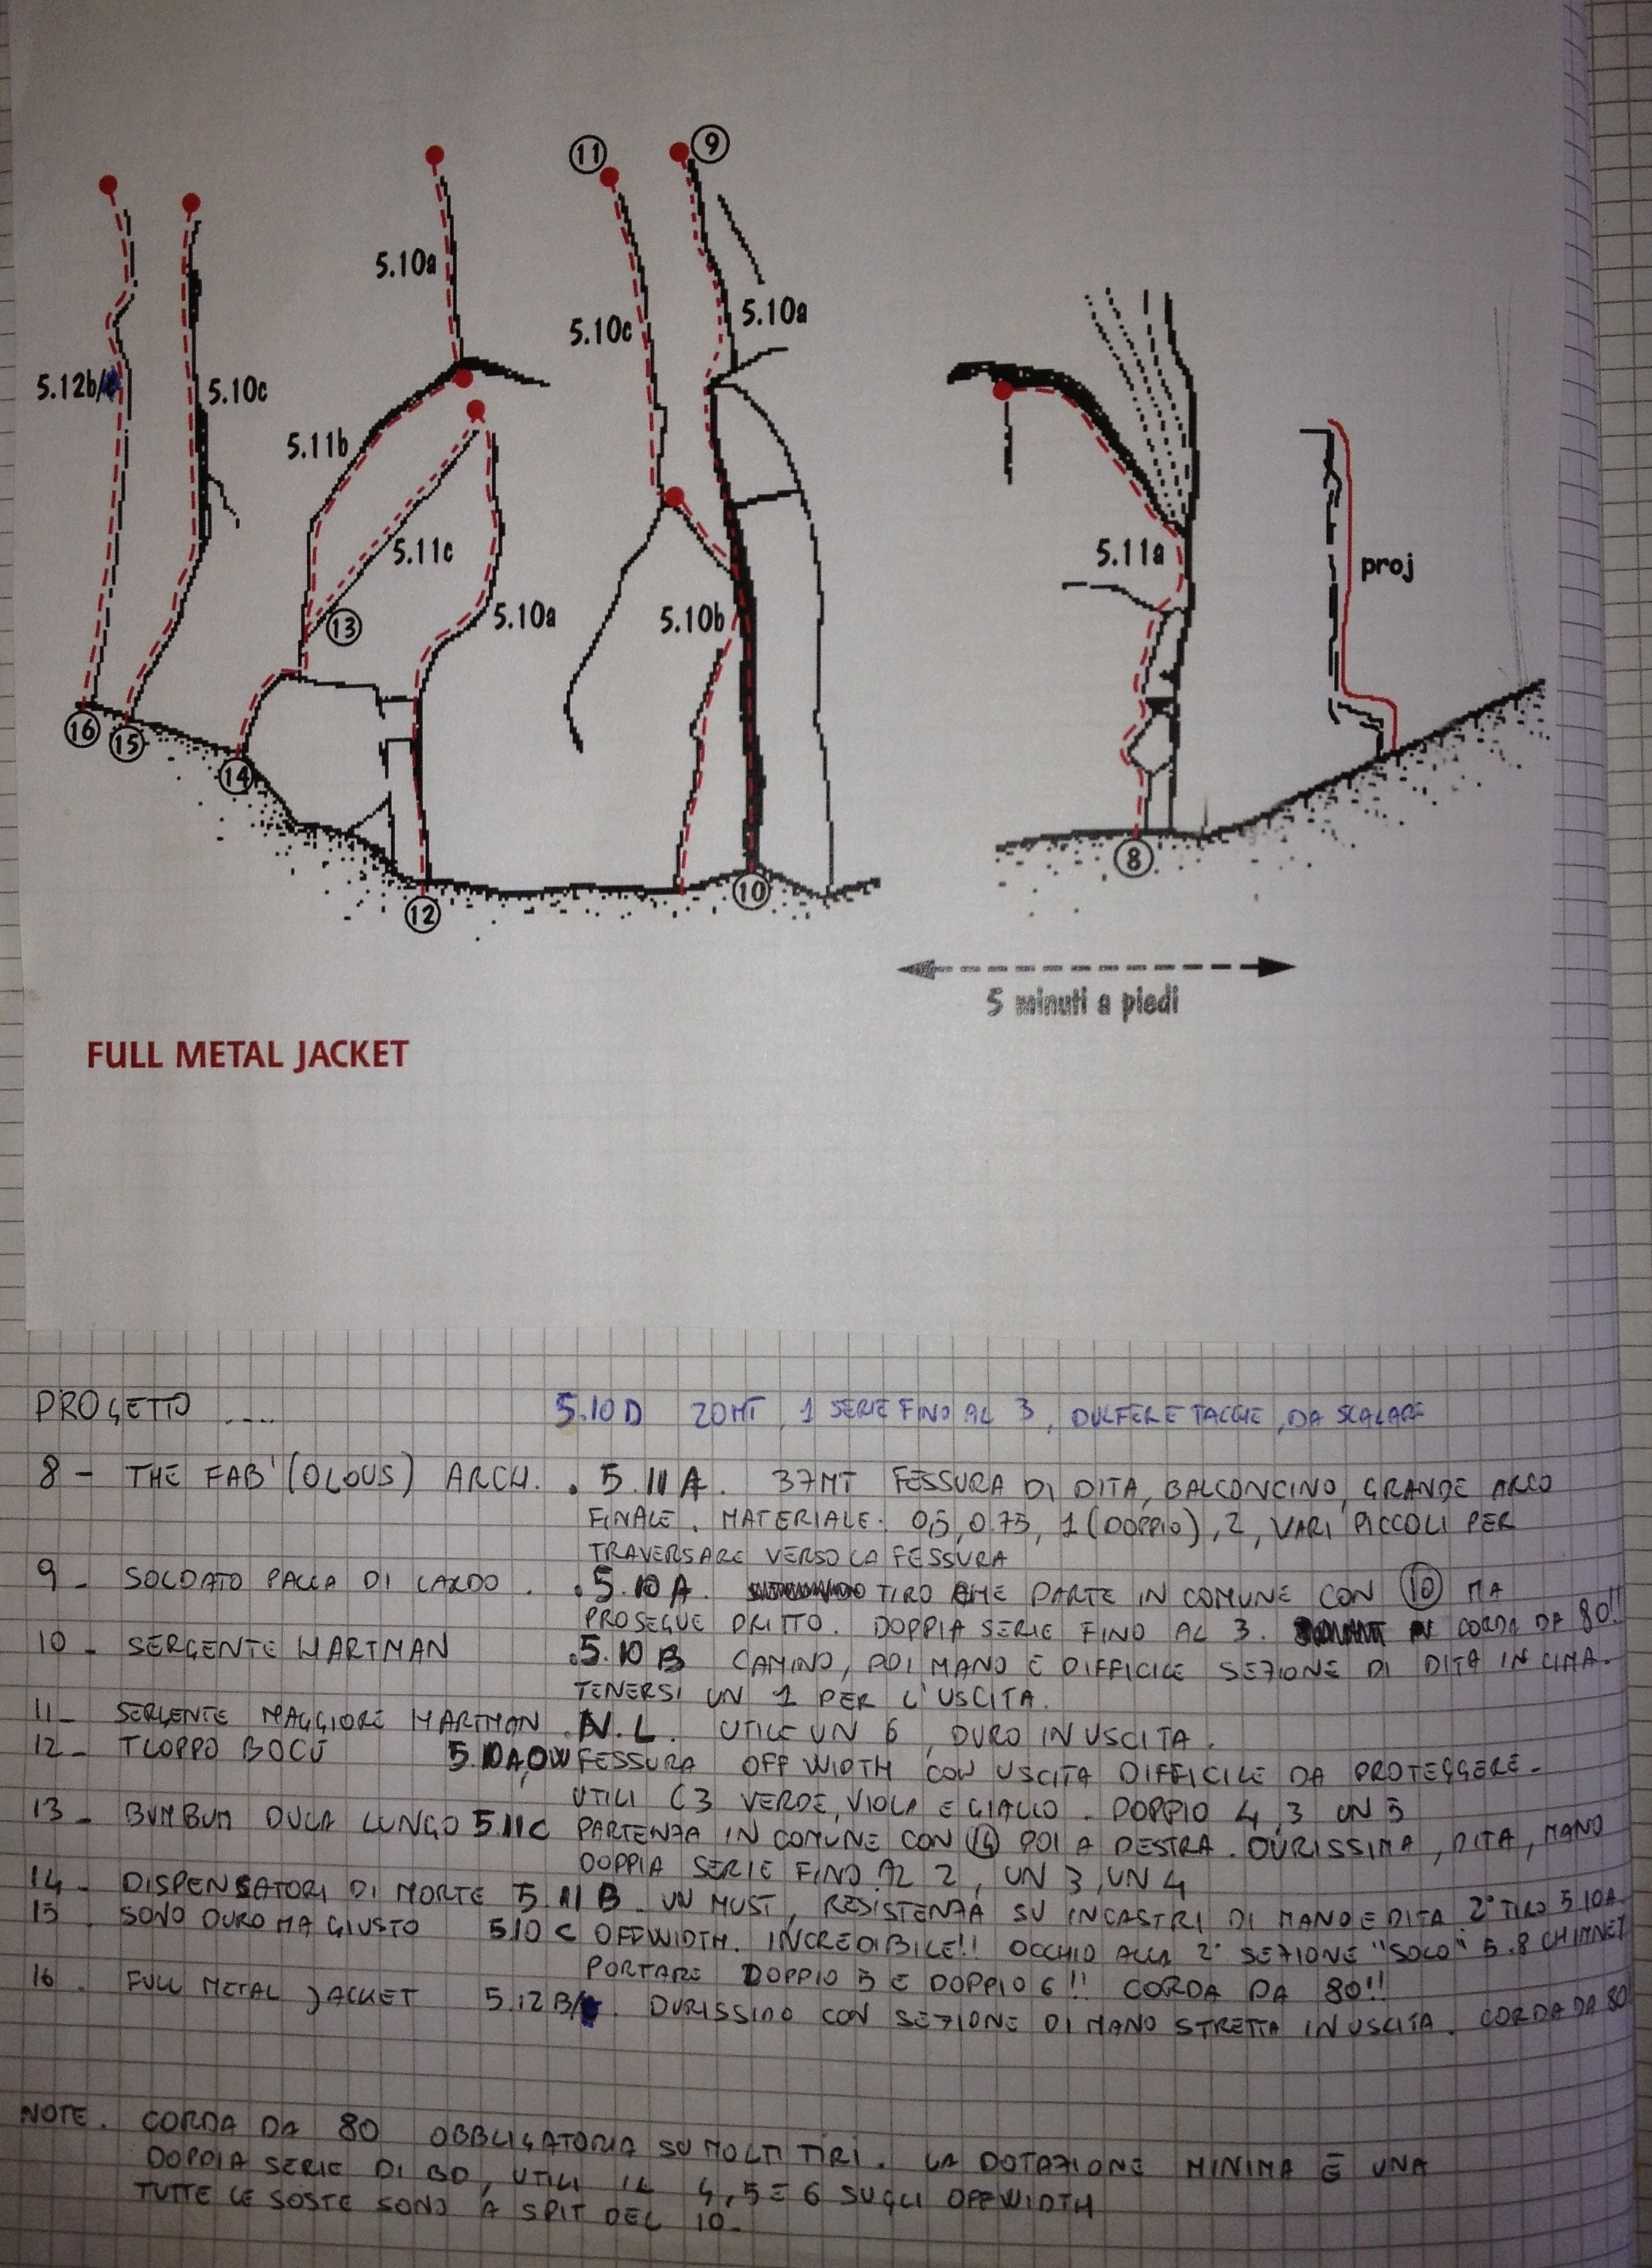 11
9
5.10a
5.10c
5.10a
5.12b/
5.10c
5.11b
5.11c
5.11a
proj
13
5.10a
5.10b
16
15
14
8
10
12
5 minuti a piedi
FULL METAL JACKET
PROGETTO .... 5.10D 20MT, 1 SERIE FINO AL 3, DULFER E TACCHE, DA SCALARE
8 - THE FAB'(OLOUS) ARCH. . 5.11A. 37MT FESSURA DI DITA, BALCONCINO, GRANDE ARCO
FINALE. MATERIALE: 0,5, 0.75, 1 (DOPPIO), 2, VARI PICCOLI PER
TRAVERSARE VERSO LA FESSURA
9 - SOLDATO PALLA DI LARDO . .5.10A. TIRO CHE PARTE IN COMUNE CON 10 MA
PROSEGUE DRITTO. DOPPIA SERIE FINO AL 3. CORDA DA 80!!
10 - SERGENTE HARTMAN .5.10B CAMINO, POI MANO E DIFFICILE SEZIONE DI DITA IN CIMA.
TENERSI UN 1 PER L'USCITA.
11 - SERGENTE MAGGIORE HARTMAN . N.L. UTILE UN 6, DURO IN USCITA.
12 - TLOPPO BOCÙ 5.10A,OW FESSURA OFF WIDTH CON USCITA DIFFICILE DA PROTEGGERE.
UTILI C3 VERDE, VIOLA E GIALLO. DOPPIO 4, 3 UN 5
13 - BUMBUM DULA LUNGO 5.11C PARTENZA IN COMUNE CON 14 POI A DESTRA. DURISSIMA, DITA, MANO
DOPPIA SERIE FINO AL 2, UN 3, UN 4
14 - DISPENSATORI DI MORTE 5.11B. UN MUST, RESISTENZA SU INCASTRI DI MANO E DITA 2° TIRO 5.10A
15. SONO DURO MA GIUSTO 5.10C OFFWIDTH. INCREDIBILE!! OCCHIO ALLA 2° SEZIONE "SOLO" 5.8 CHIMNEY
PORTARE DOPPIO 5 E DOPPIO 6!! CORDA DA 80!!
16. FULL METAL JACKET 5.12B/ . DURISSIMO CON SEZIONE DI MANO STRETTA IN USCITA. CORDA DA 80
NOTE. CORDA DA 80 OBBLIGATORIA SU MOLTI TIRI. LA DOTAZIONE MINIMA È UNA
DOPPIA SERIE DI BD, UTILI IL 4, 5 E 6 SUGLI OFFWIDTH
TUTTE LE SOSTE SONO A SPIT DEL 10.